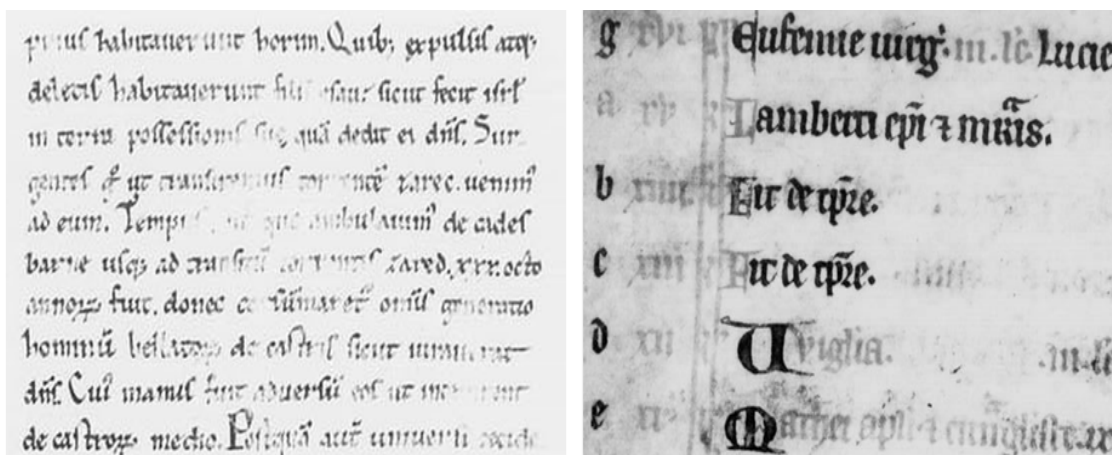 prius habitauerunt horim. Quib; expulsis atq;
deletis habitauerunt filii esau: sicut fecit isrl
in terra possessionis sue quā dedit ei dn̄s. Sur
gentes ut transiremus torrentē zarec. uenim᾽
ad eum. Tempus quo ambulauim᾽ de cades
barne usq; ad transitū torrentis zared. xxx. octo
annoꝝ fuit. donec omīs generatio
hominū bellatoꝝ de castris sicut iurauerat
dn̄s. Cui᾽ manus fuit aduersū eos ut
de castroꝝ medio. Postquā aut̄ uniuersi
g xvi Eufemie uirg᾽. m. lc̄. Lucie
a xv Lamberti ep̄i ⁊ mr̄is.
b xiiii Fit de tp̄re.
c xiii Fit de tp̄re.
d xii Vigilia. .m. lc̄
e Mathei apl̄i ⁊